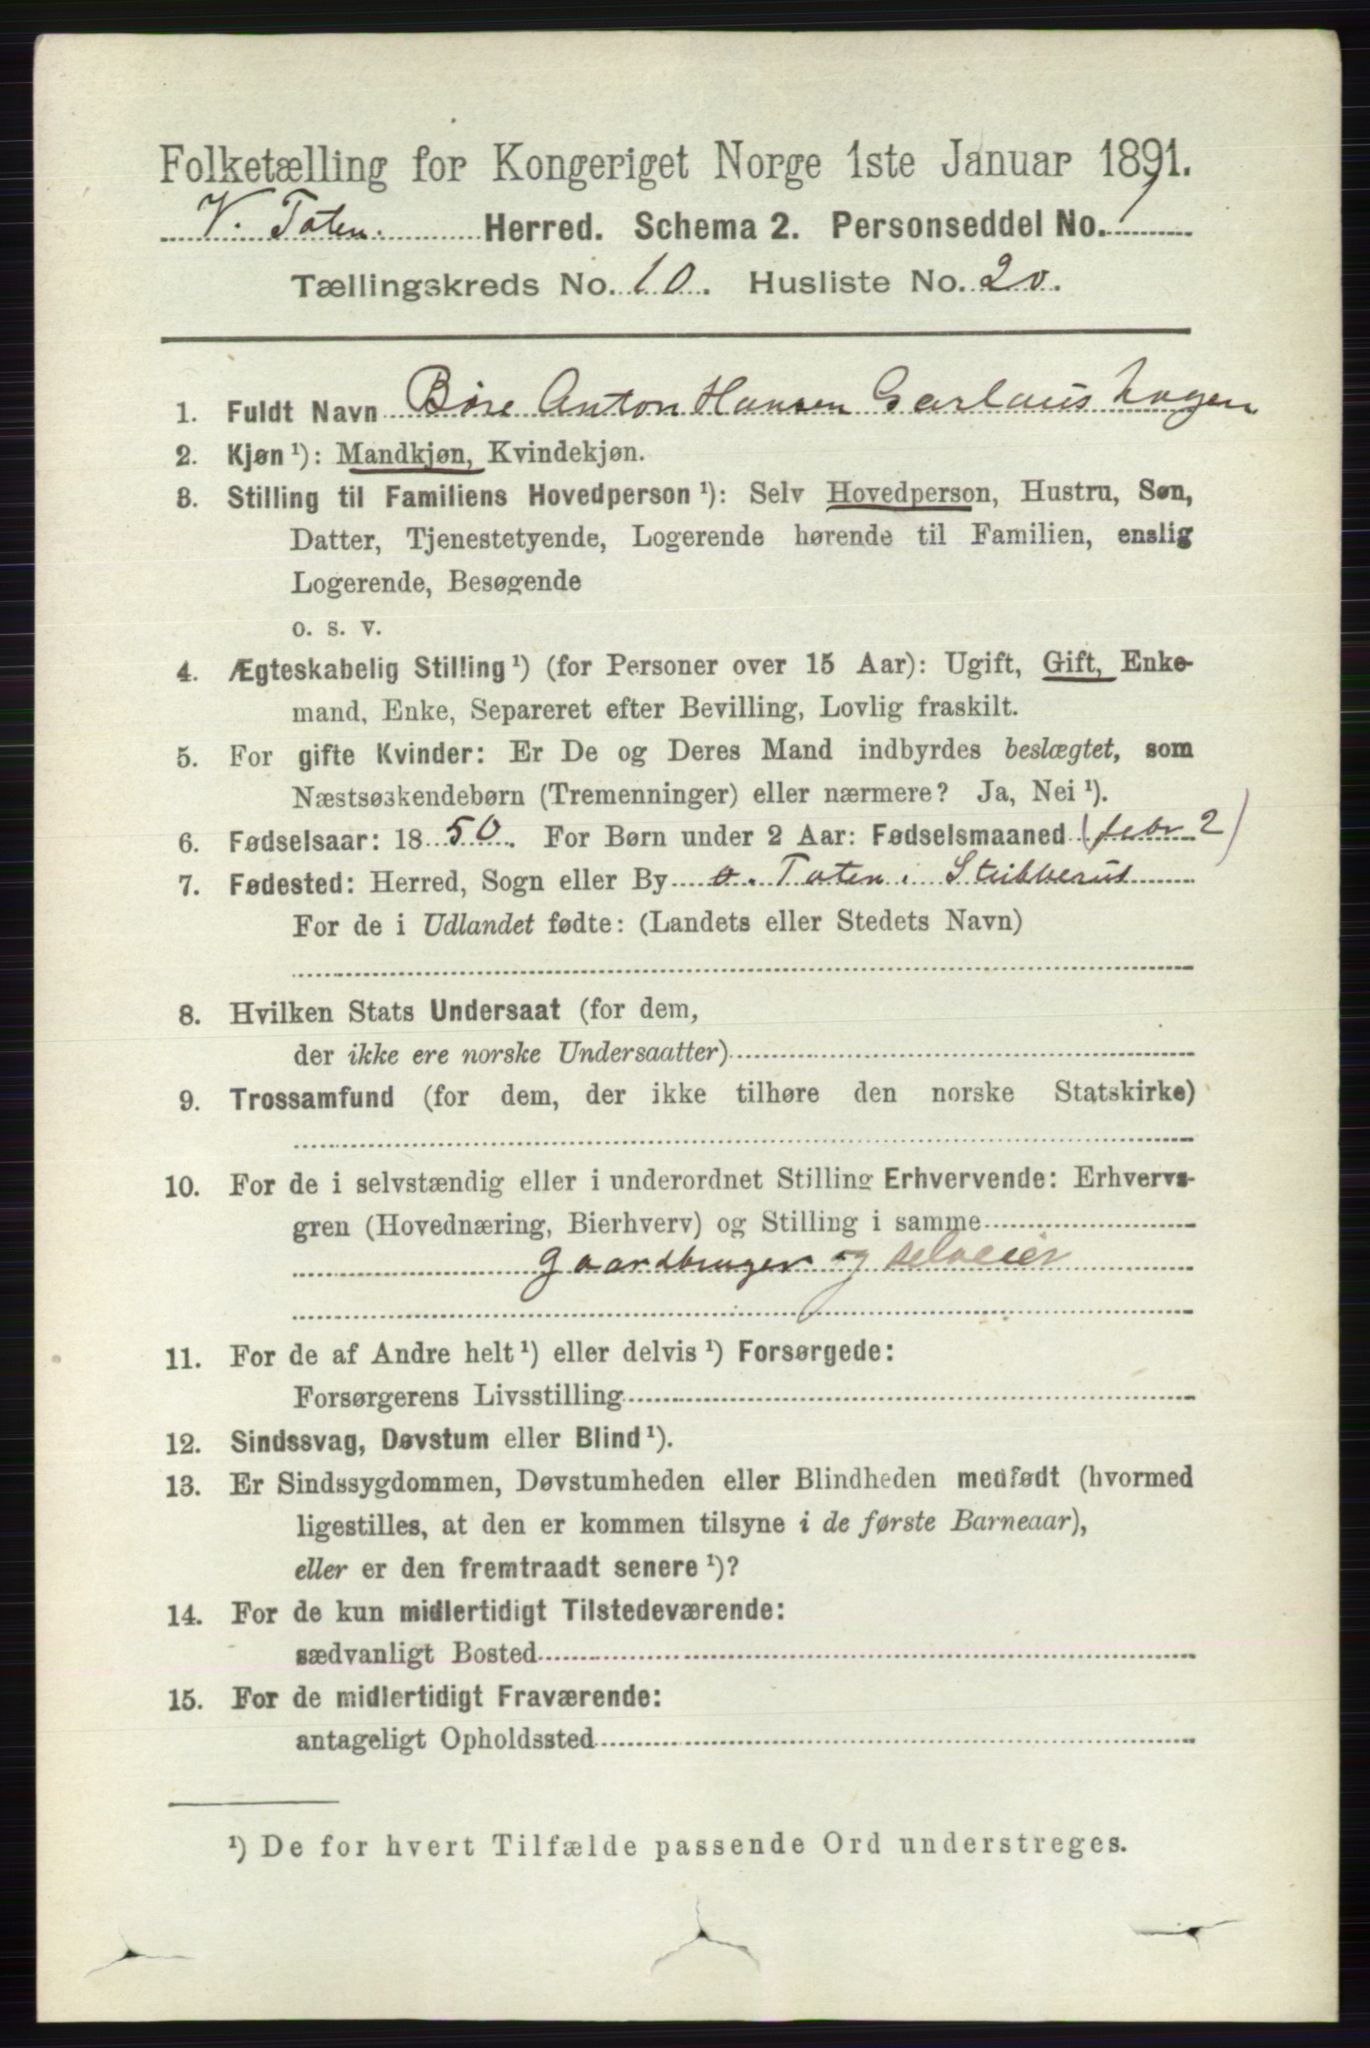 Folketælling for Kongeriget Norge 1ste Januar 1891.
V. Toten. Herred. Schema 2. Personseddel No. 1
Tællingskreds No. 10. Husliste No. 20.
1. Fuldt Navn Anton Hansen hagen
2. Kjøn ¹): Mandkjøn, Kvindekjøn.
3. Stilling til Familiens Hovedperson ¹): Selv Hovedperson, Hustru, Søn,
Datter, Tjenestetyende, Logerende hørende til Familien, enslig
Logerende, Besøgende
o. s. v.
4. Ægteskabelig Stilling ¹) (for Personer over 15 Aar): Ugift, Gift, Enke-
mand, Enke, Separeret efter Bevilling, Lovlig fraskilt.
5. For gifte Kvinder: Er De og Deres Mand indbyrdes beslægtet, som
Næstsøskendebørn (Tremenninger) eller nærmere? Ja, Nei ¹).
6. Fødselsaar: 1850. For Børn under 2 Aar: Fødselsmaaned (febr 2)
7. Fødested: Herred, Sogn eller By ø. Toten i
For de i Udlandet fødte: (Landets eller Stedets Navn)
8. Hvilken Stats Undersaat (for dem,
der ikke ere norske Undersaatter)
9. Trossamfund (for dem, der ikke tilhøre den norske Statskirke)
10. For de i selvstændig eller i underordnet Stilling Erhvervende: Erhvervs-
gren (Hovednæring, Bierhverv) og Stilling i samme
gaardbruger og selveier
11. For de af Andre helt ¹) eller delvis ¹) Forsørgede:
Forsørgerens Livsstilling
12. Sindssvag, Døvstum eller Blind ¹).
13. Er Sindssygdommen, Døvstumheden eller Blindheden medfødt (hvormed
ligestilles, at den er kommen tilsyne i de første Barneaar),
eller er den fremtraadt senere ¹)?
14. For de kun midlertidigt Tilstedeværende:
sædvanligt Bosted
15. For de midlertidigt Fraværende:
antageligt Opholdssted
¹) De for hvert Tilfælde passende Ord understreges.